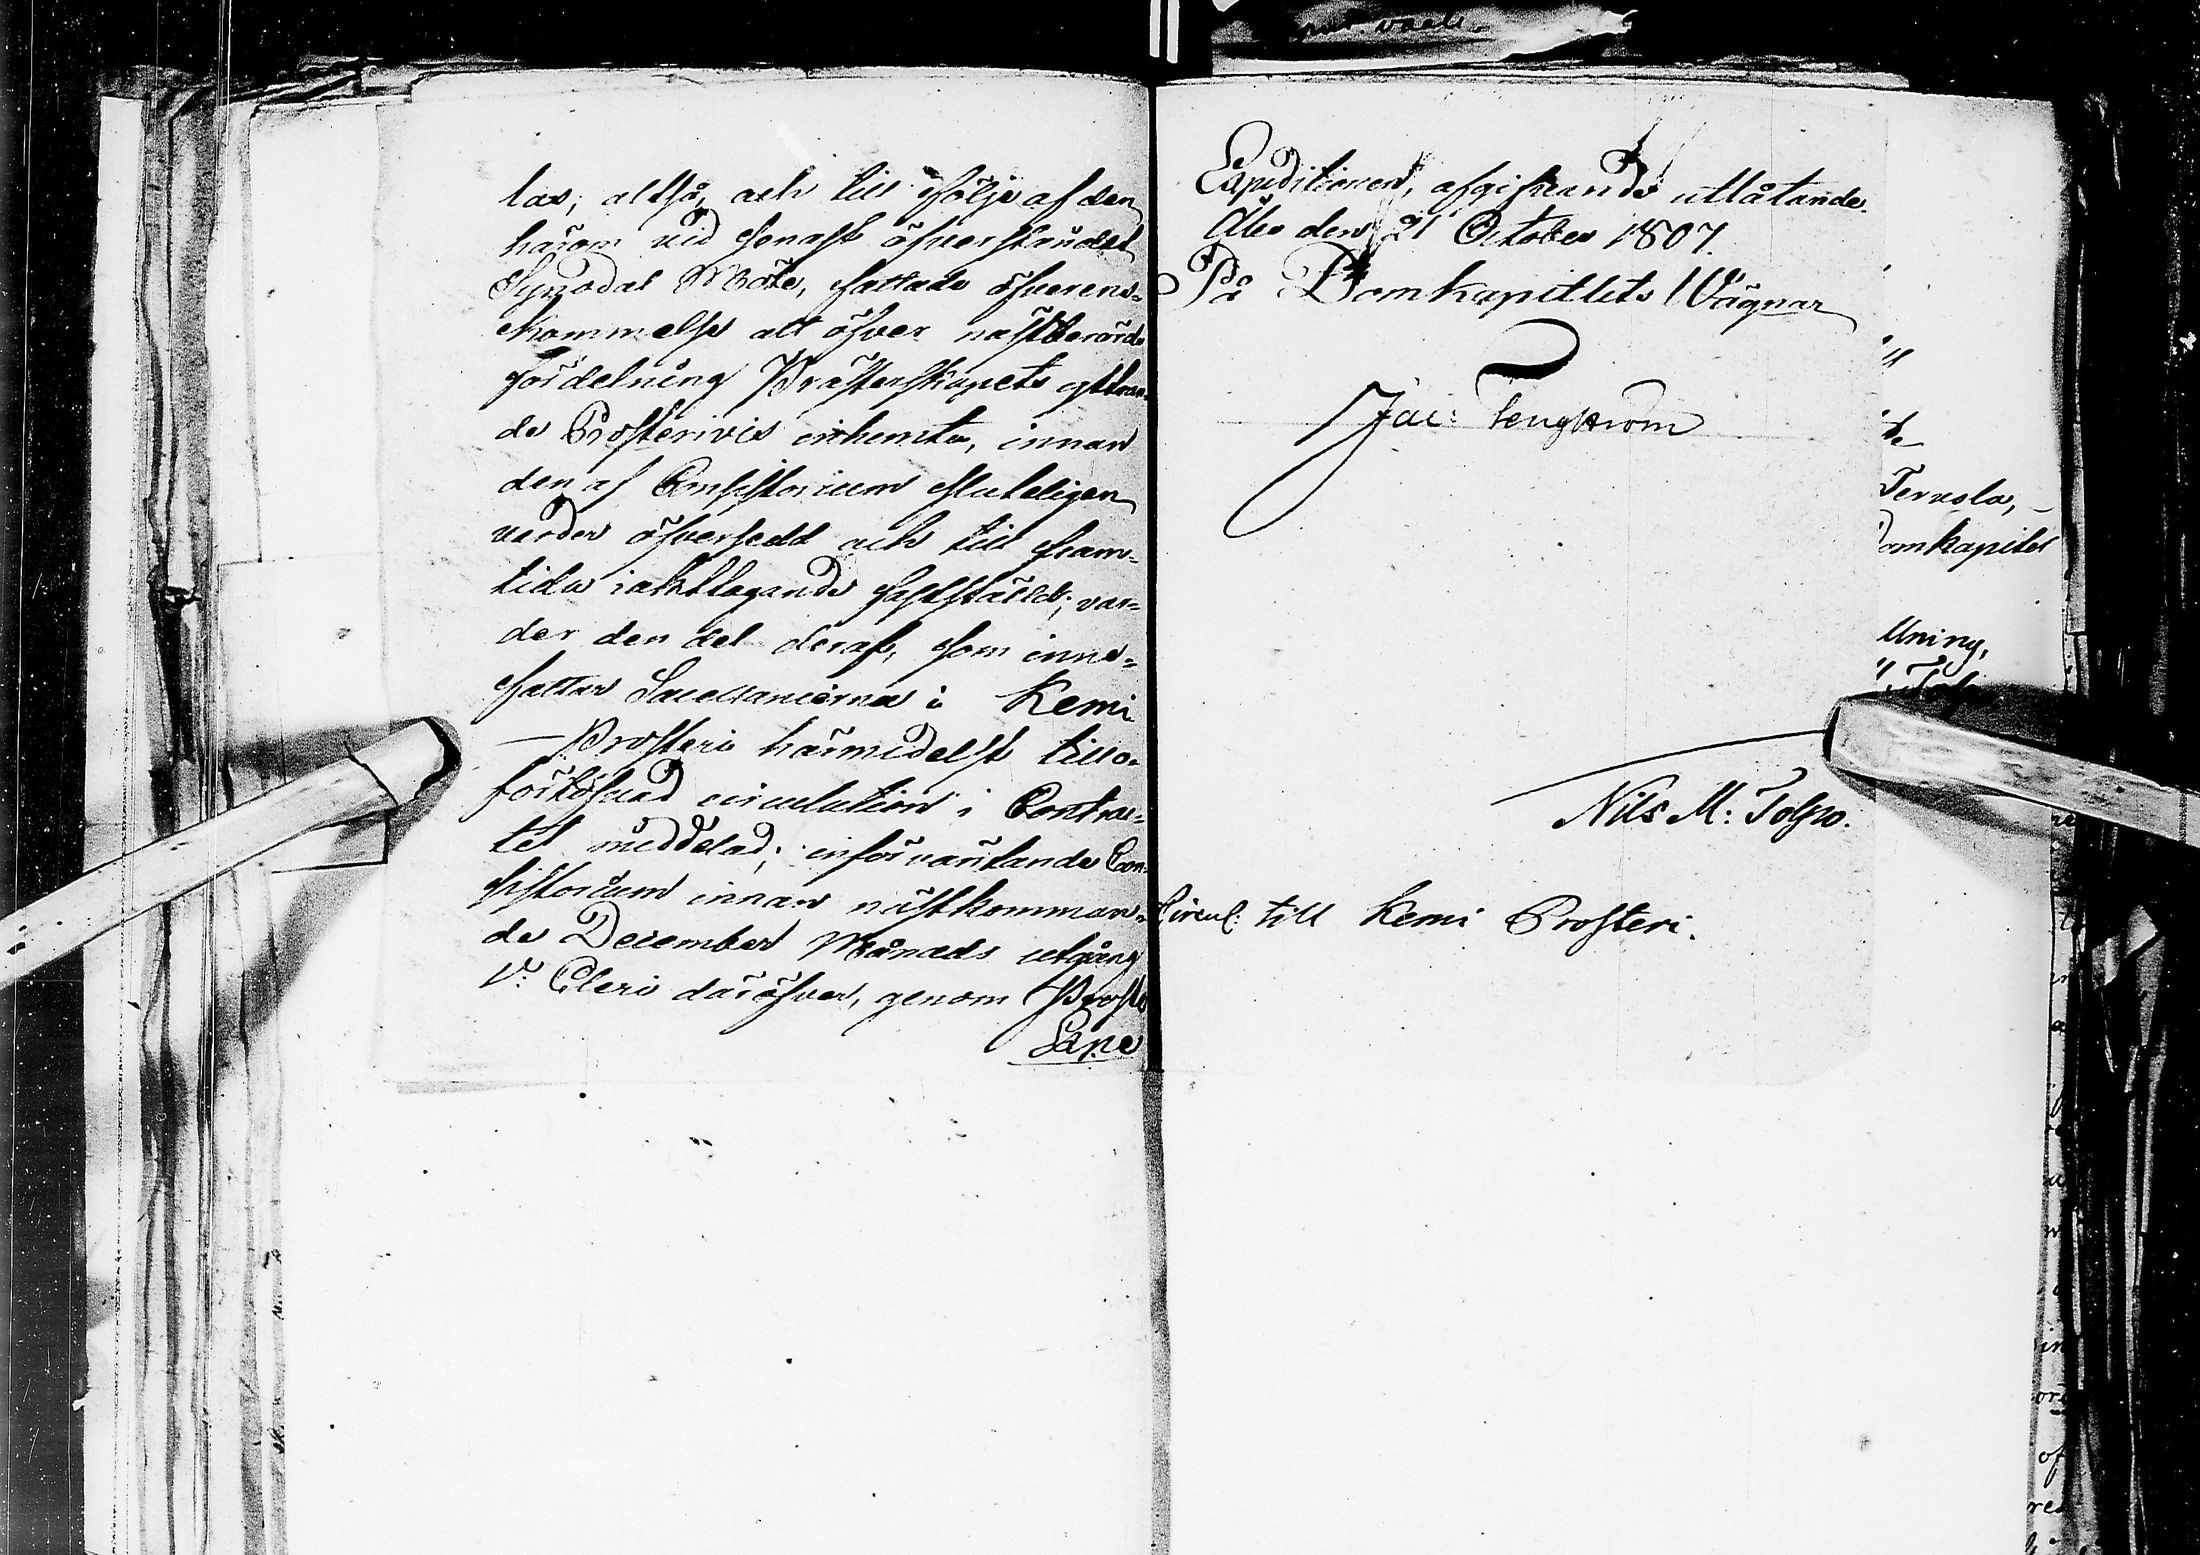 las, altså, och till följe af den
härom vid senast öfverståndet
Synodal Möte, fattade öfverens-
kommelse att öfver nästberörde
fördelning Prästerskapets yttran-
de Prosterivis inhemta, innan
den af Consistorium sluteligen
varder öfversedd och till fram-
tida iakttagande fastställd; var-
der den del deraf, som inne-
fattar Sacellanierna i Kemi
— Prosteri härmedelst till o-
förtöfvad circulation i Contrac-
tet meddelad; införväntande Con-
sistorium innan nästkomman-
de December Månads utgång
V: Cleri däröfver, genom Prosts
Expe
Expeditionen, afgifvande utlåtande.
Åbo den 21 October 1807.
På Domkapitlets Vägnar
Jac: Tengström
Nils M: Tolpo.
Circul: till Kemi Prosteri.
Tervola,
omkapitel